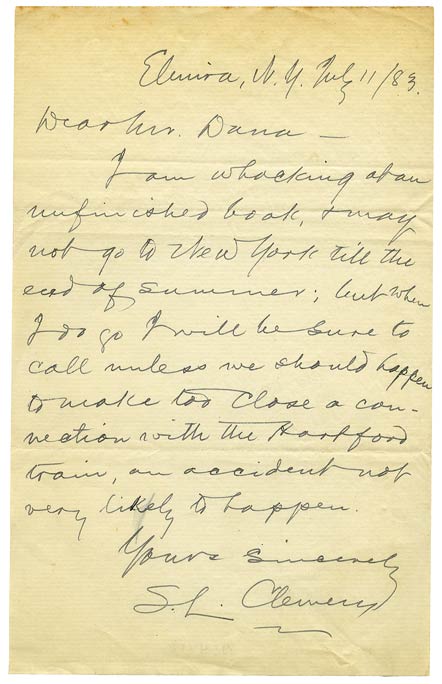 Elmira, N.Y. July 11/83.
Dear Mr. Dana —
I am whacking at an
unfinished book, & may
not go to New York till the
end of summer; but when
I do go I will be sure to
call unless we should happen
to make too close a con-
nection with the Hartford
train, an accident not
very likely to happen.
Yours sincerely
S. L. Clemens